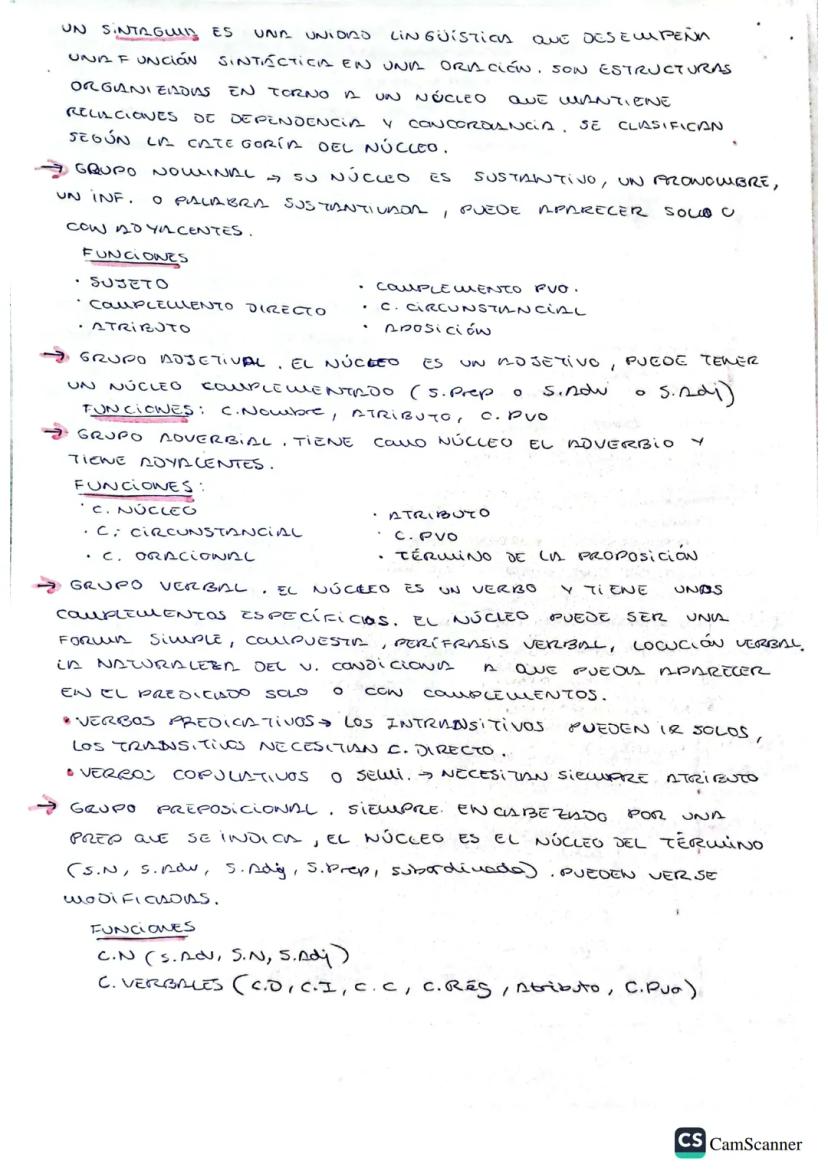 UN SINTAGMA ES UNA UNIDAD LINGÜÍSTICA QUE DESEMPEÑA
UNA FUNCIÓN SINTÁCTICA EN UNA ORACIÓN. SON ESTRUCTURAS
ORGANIZADAS EN TORNO A UN NÚCLEO QUE MANTIENE
RELACIONES DE DEPENDENCIA Y CONCORDANCIA. SE CLASIFICAN
SEGÚN LA CATEGORÍA DEL NÚCLEO.
→ GRUPO NOMINAL → SU NÚCLEO ES SUSTANTIVO, UN PRONOMBRE,
UN INF. O PALABRA SUSTANTIVADA, PUEDE APARECER SOLO O
CON ADYACENTES.
FUNCIONES
· SUJETO
· COMPLEMENTO DIRECTO
· ATRIBUTO
· COMPLEMENTO PVO.
· C. CIRCUNSTANCIAL
· APOSICIÓN
→ GRUPO ADJETIVAL. EL NÚCLEO ES UN ADJETIVO, PUEDE TENER
UN NÚCLEO COMPLEMENTADO (S.Prep o S.Adv o S.Adj)
FUNCIONES: C.Nombre, ATRIBUTO, C. PVO
→ GRUPO ADVERBIAL. TIENE COMO NÚCLEO EL ADVERBIO Y
TIENE ADYACENTES.
FUNCIONES:
· C. NÚCLEO
· C. CIRCUNSTANCIAL
· C. ORACIONAL
· ATRIBUTO
· C. PVO
· TÉRMINO DE LA PROPOSICIÓN
→ GRUPO VERBAL. EL NÚCLEO ES UN VERBO Y TIENE UNOS
COMPLEMENTOS ESPECÍFICOS. EL NÚCLEO PUEDE SER UNA
FORMA SIMPLE, COMPUESTA, PERÍFRASIS VERBAL, LOCUCIÓN VERBAL.
LA NATURALEZA DEL V. CONDICIONA A QUE PUEDA APARECER
EN EL PREDICADO SOLO O CON COMPLEMENTOS.
• VERBOS PREDICATIVOS → LOS INTRANSITIVOS PUEDEN IR SOLOS,
LOS TRANSITIVOS NECESITAN C. DIRECTO.
• VERBOS COPULATIVOS O SEMI. → NECESITAN SIEMPRE ATRIBUTO
→ GRUPO PREPOSICIONAL. SIEMPRE ENCABEZADO POR UNA
PREP QUE SE INDICA, EL NÚCLEO ES EL NÚCLEO DEL TÉRMINO
(S.N, S.Adv, S.Adj, S.Prep, subordinada). PUEDEN VERSE
MODIFICADAS.
FUNCIONES
C.N (S.Adv, S.N, S.Adj)
C. VERBALES (C.D, C.I, C.C, C.Rég, Atributo, C.Pvo)
CS CamScanner